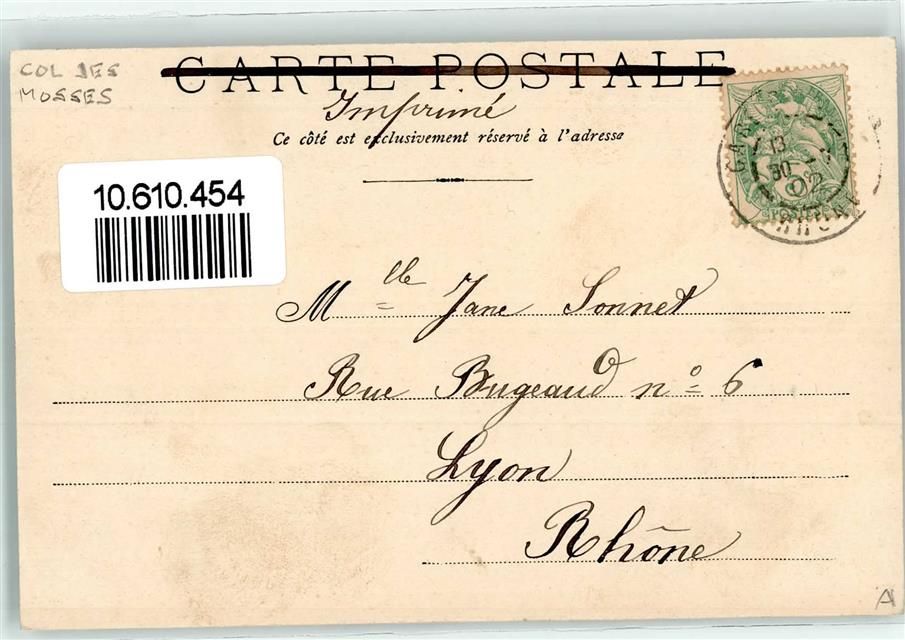 COL DES
MOSSES
CARTE POSTALE
Imprimé
Ce côté est exclusivement réservé à l'adresse
10.610.454
13
30
02
POSTES
Mlle Jane Sonnet
Rue Bugeaud n° 6
Lyon
Rhône
A